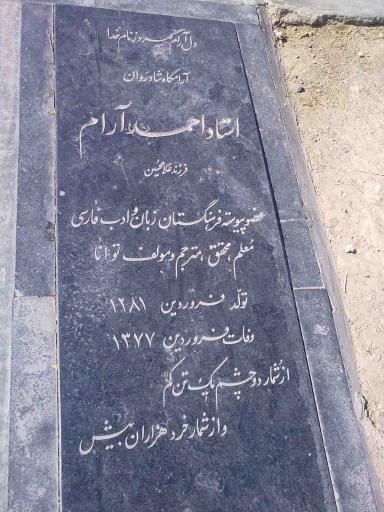 دل آرام گیرد ز نام خدا
آرامگاه شادروان
استاد احمد آرام
فرزند غلامحسین
عضو پیوسته فرهنگستان زبان و ادب فارسی
معلم، محقق، مترجم و مولف توانا
تولد فروردین ۱۲۸۱
وفات فروردین ۱۳۷۷
از شمار دو چشم یک تن کم
و از شمار خرد هزاران بیش